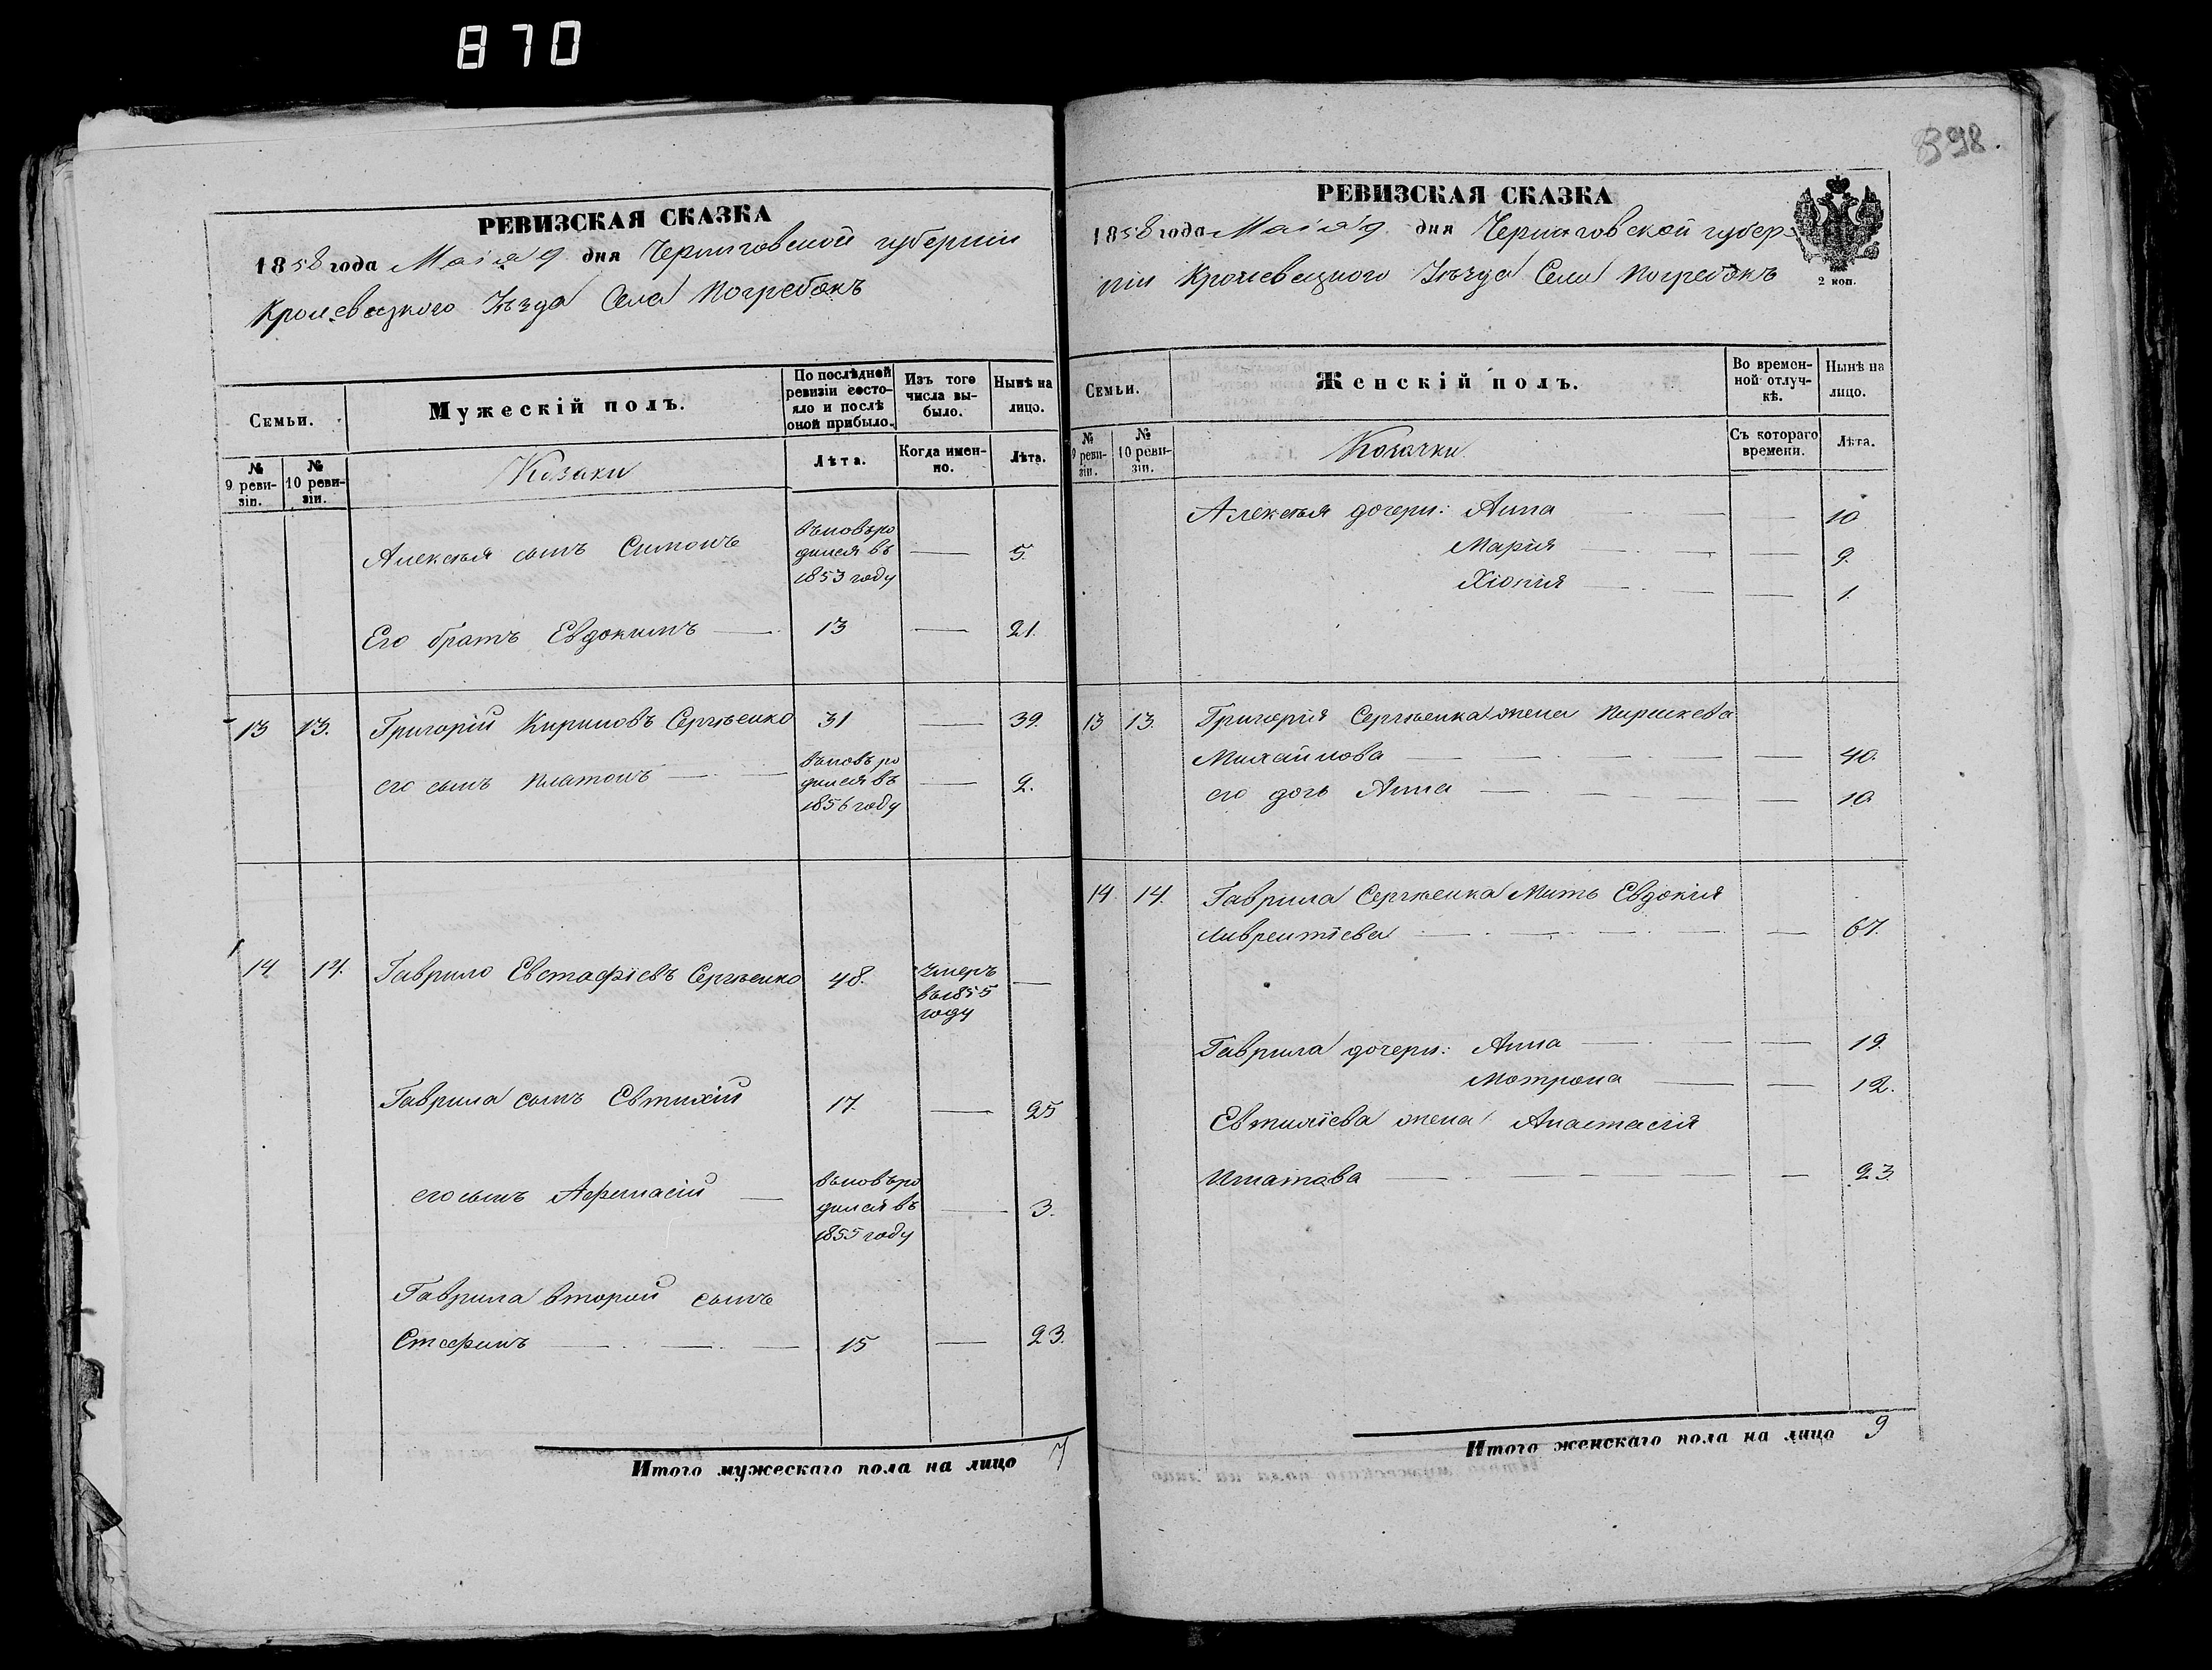 870
РЕВИЗСКАЯ СКАЗКА
1858 года Маія 9 дня Черниговской губерніи
Кролевецкого Уѣзда Села Погребокъ
Семьи.
Мужескій полъ.
По послѣдней ревизіи состояло и послѣ оной прибыло.
Изъ того числа выбыло.
Нынѣ на лицо.
№ 9 ревизіи.
№ 10 ревизіи.
Козаки
Лѣта.
Когда именно.
Лѣта.
Алексѣя сынъ Симонъ вновь родился въ 1853 году — 5.
Его братъ Евдокимъ — 13 — 21.
13 13. Григорій Кириловъ Сергѣенко 31 — 39.
его сынъ Платонъ — вновь родился въ 1856 году — 2.
14 14. Гаврило Евстафіевъ Сергѣенко 48. умеръ въ 1855 году —
Гаврила сынъ Евтихій 17. — 25
его сынъ Афанасій — вновь родился въ 1855 году — 3.
Гаврила вторый сынъ
Стефанъ — 15 — 23.
Итого мужескаго пола на лицо 7
398.
РЕВИЗСКАЯ СКАЗКА
1858 года Маія 9 дня Черниговской губер-
ніи Кролевецкого Уѣзда Села Погребокъ
2 коп.
Семьи.
Женскій полъ.
Во временной отлучкѣ.
Нынѣ на лицо.
№ 9 ревизіи.
№ 10 ревизіи.
Козачки
Съ котораго времени.
Лѣта.
Алексѣя дочери: Анна — — 10
Марія — — 9.
Хіонія — — 1.
13 13. Григорія Сергѣенка жена Параскева
Михайлова — — 40.
его дочь Анна — — 10.
14. 14. Гаврила Сергѣенка Мать Евдокія
Лаврентіева — — 67.
Гаврила дочери: Анна — — 19.
Мотрона — — 12.
Евтихіева жена Анастасія
Игнатова — — 23.
Итого женскаго пола на лицо 9